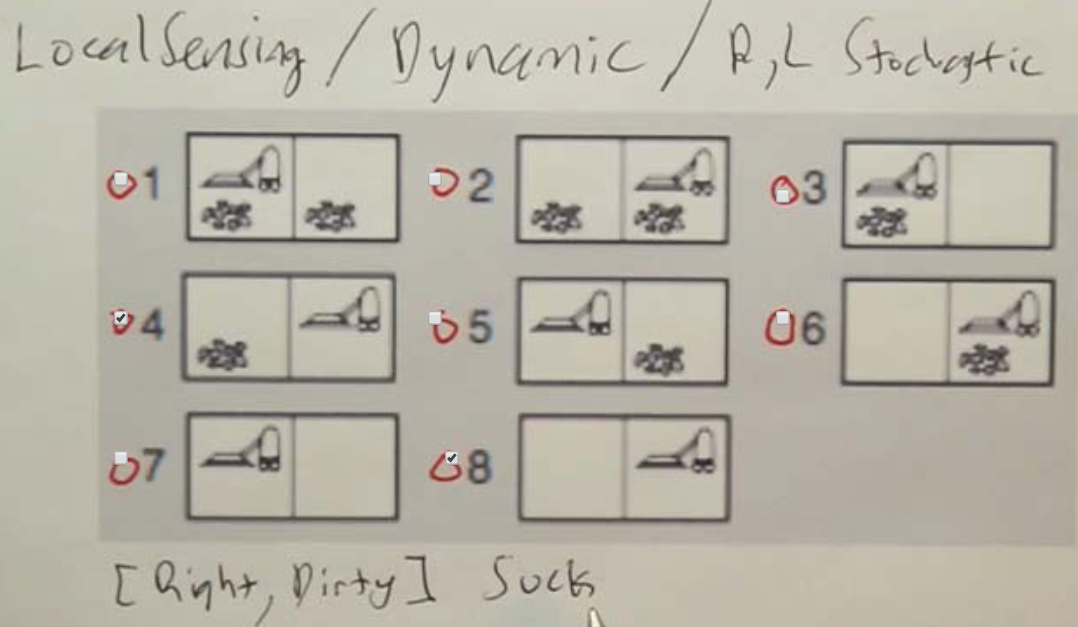 Local Sensing / Dynamic / R,L Stochastic
1 2 3
4 5 6
7 8
[Right, Dirty] Suck